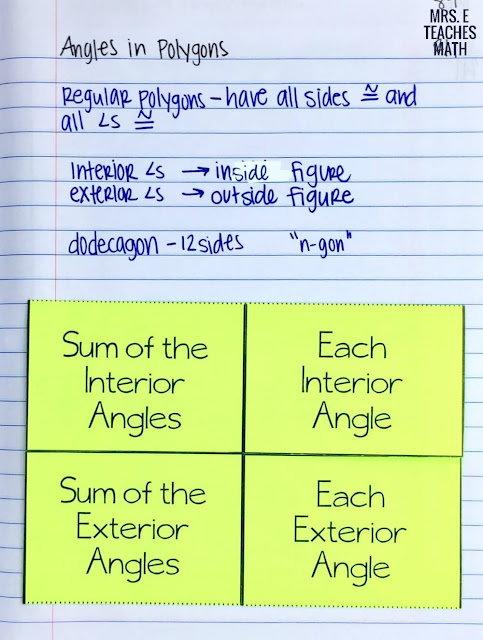 MRS. E
TEACHES
MATH
Angles in Polygons
Regular polygons - have all sides ≅ and
all ∠s ≅
Interior ∠s → inside figure
exterior ∠s → outside figure
dodecagon - 12 sides "n-gon"
Sum of the
Interior
Angles
Each
Interior
Angle
Sum of the
Exterior
Angles
Each
Exterior
Angle